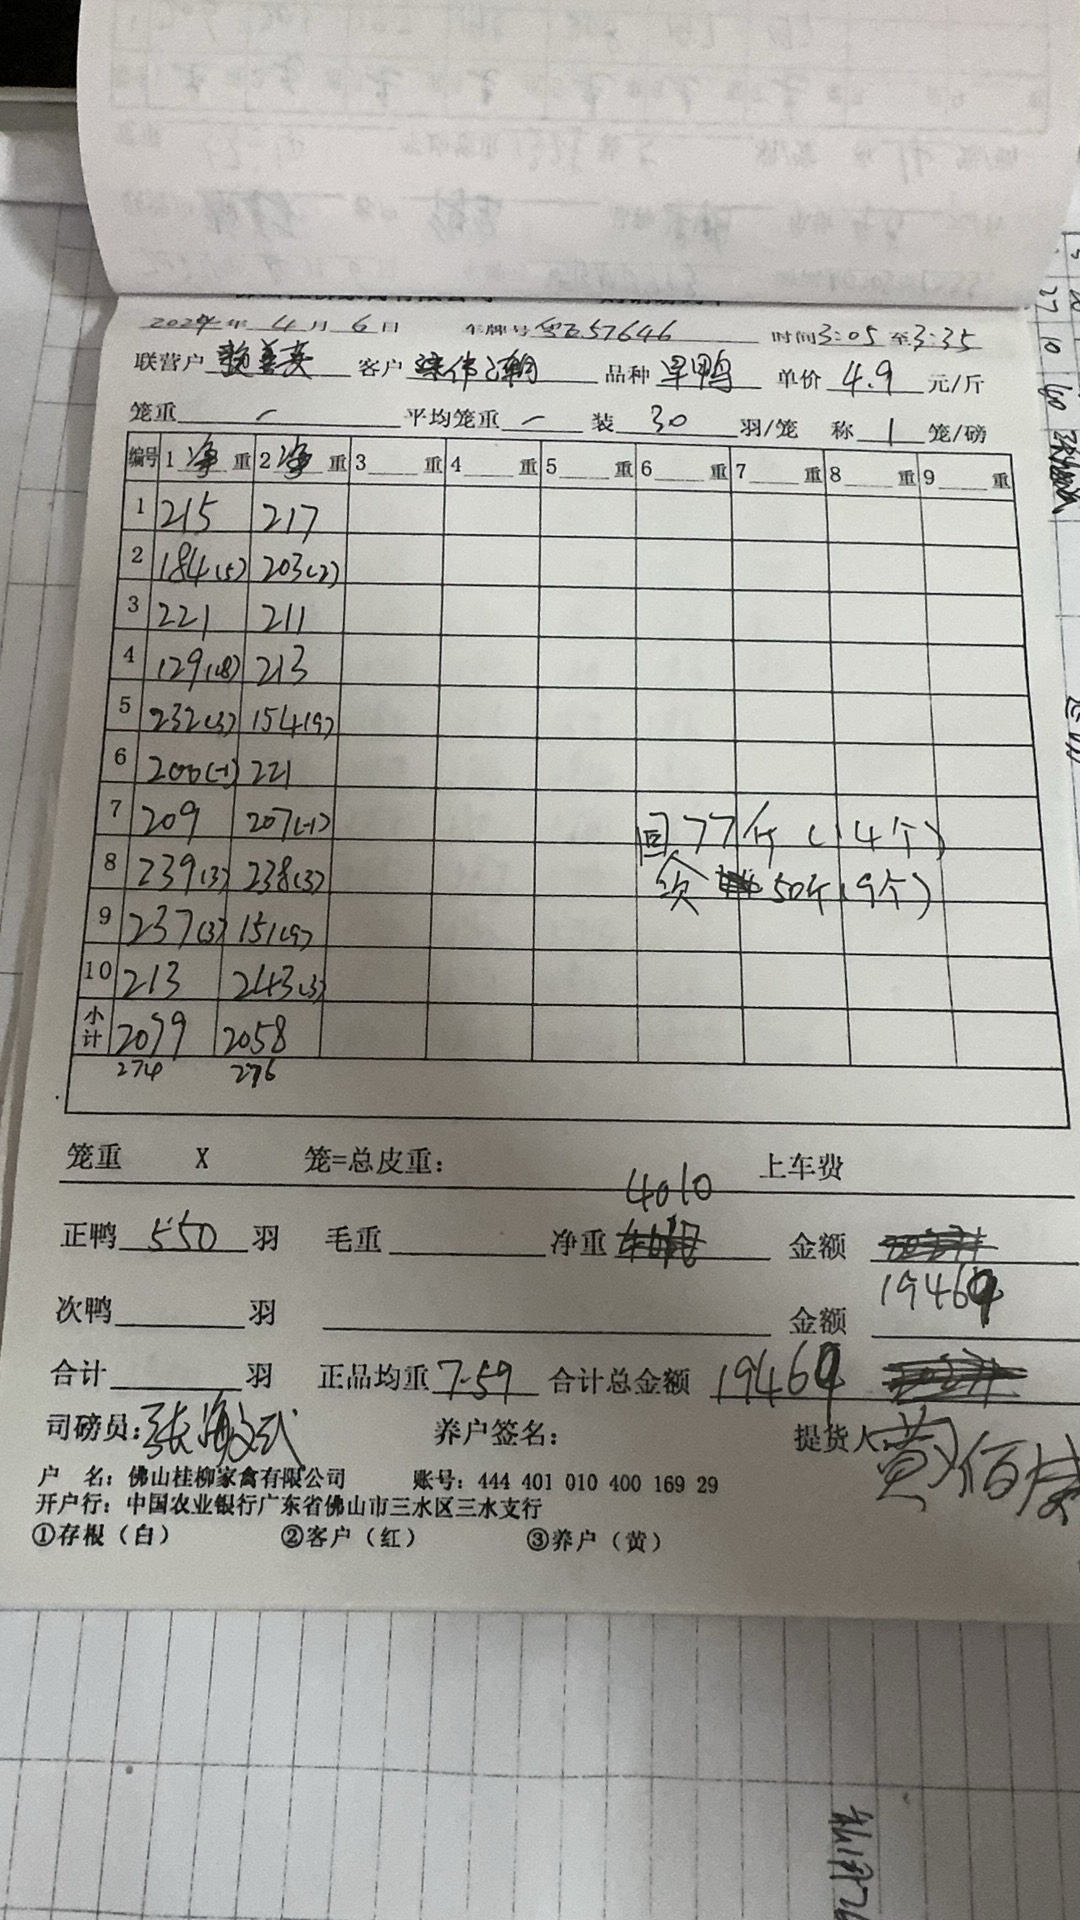 2024年 4月 6日 车牌号 粤E57646 时间3:05 至3:35
联营户 客户 品种 旱鸭 单价 4.9 元/斤
笼重 - 平均笼重 - 装 30 羽/笼 称 1 笼/磅
编号 1 净 重 2 净 重 3 重 4 重 5 重 6 重 7 重 8 重 9 重
1 215 217
2 184(5) 203(2)
3 221 211
4 129(18) 213
5 232(3) 154(9)
6 200(-1) 221
7 209 207(-1)
回77斤(14个)
8 239(3) 238(3)
欠 50斤(9个)
9 237(3) 151(9)
10 213 243(3)
小计 2079 2058
274 276
笼重 X 笼=总皮重: 上车费
4010
正鸭 550 羽 毛重 净重 金额
19469
次鸭 羽 金额
合计 羽 正品均重 7.59 合计总金额 19469
司磅员: 养户签名: 提货人
户 名: 佛山桂柳家禽有限公司 账号: 444 401 010 400 169 29
开户行: 中国农业银行广东省佛山市三水区三水支行
①存根(白) ②客户(红) ③养户(黄)